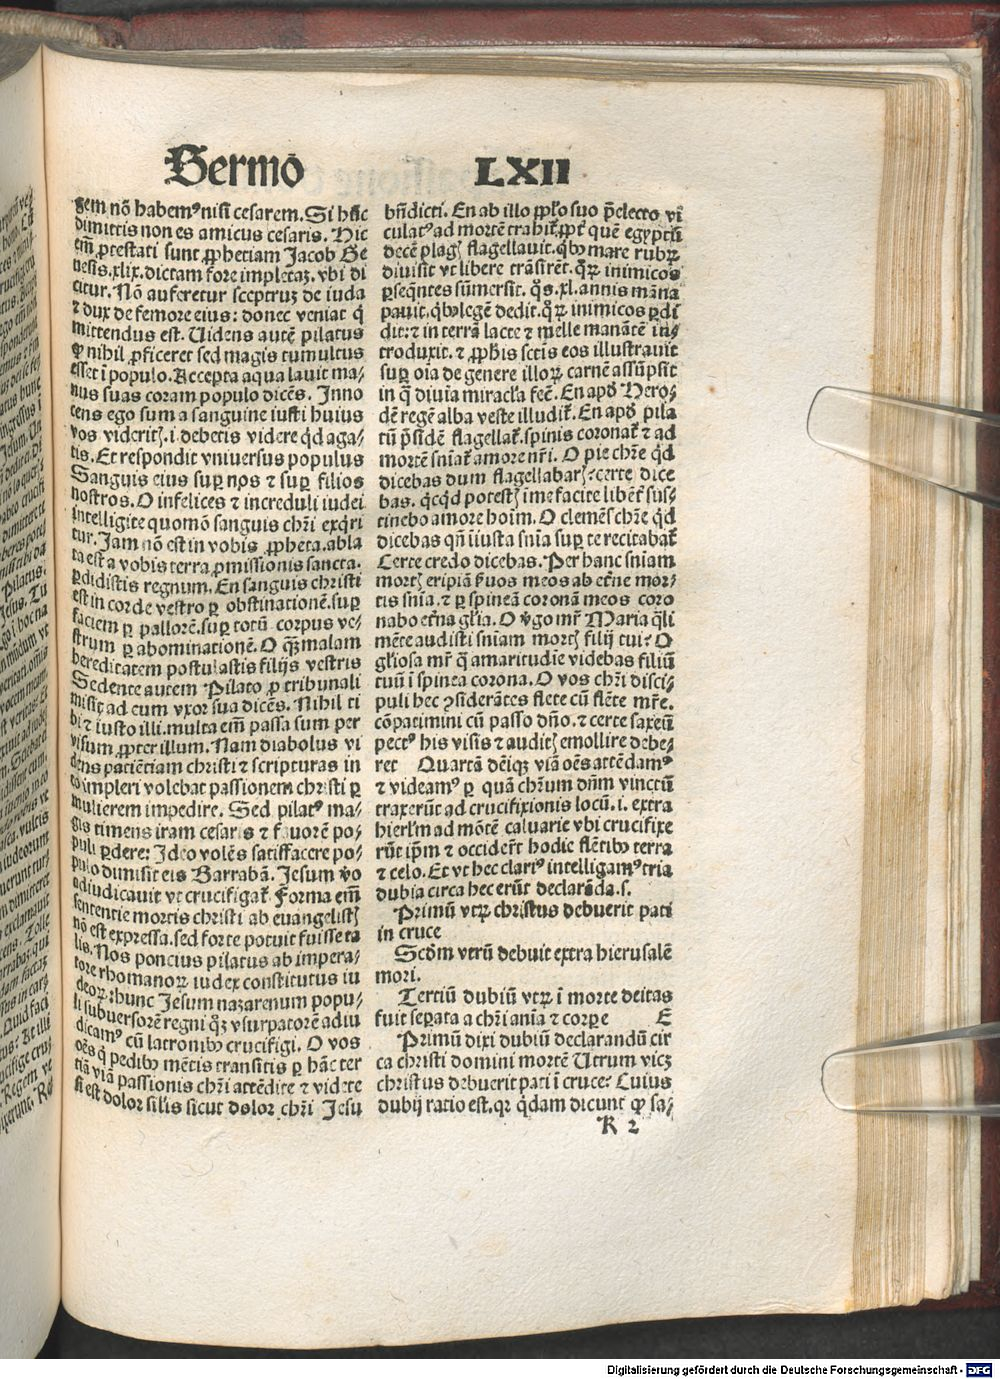 Sermo LXII
gem nō habemꝰ nisi cesarem. Si hūc
dimittis non es amicus cesaris. Hic
em̄ ꝓtestati sunt ꝓphetiam Jacob Ge
nesis .xlix. dictam fore impletaꝫ. vbi di
citur. Nō auferetur sceptruꝫ de iuda
⁊ dux de femore eius: donec veniat q̄
mittendus est. Uidens autē pilatus
ꝙ nihil ꝓficeret sed magis tumultus
esset ī populo. Accepta aqua lauit ma⸗
nus suas coram populo dicēs. Inno
cens ego sum a sanguine iusti huius
vos videritꝭ .i. debetis videre qd̄ aga⸗
tis. Et respondit vniuersus populus
Sanguis eius suꝑ nos ⁊ suꝑ filios
nostros. O infelices ⁊ increduli iudei
intelligite quomō sanguis chr̄i exq̄ri
tur. Jam nō est in vobis ꝓpheta. abla
ta est a vobis terra ꝓmissionis sancta.
ꝑdidistis regnum. En sanguis christi
est in corde vestro ꝑ obstinationē. suꝑ
faciem ꝑ pallorē. suꝑ totū corpus ve⸗
strum ꝑ abominationē. O qꝫ malam
hereditatem postulastis filijs vestris
Sedente autem Pilato ꝓ tribunali
misit ad eum vxor sua dicēs. Nihil ti
bi ⁊ iusto illi. multa em̄ passa sum per
visum ꝓpter illum. Nam diabolus vi
dens patiētiam christi ⁊ scripturas in
eo impleri volebat passionem christi ꝑ
mulierem impedire. Sed pilatꝰ ma⸗
gis timens iram cesaris ⁊ fauorē po⸗
puli ꝑdere: Ideo volēs satisfacere po⸗
pulo dimisit eis Barrabā. Jesum vo
adiudicauit vt crucifigat̄. Forma em̄
sententie mortis christi ab euangelistꝭ
nō est expressa. sed forte potuit fuisse ta
lis. Nos poncius pilatus ab impera⸗
tore rhomanoꝝ iudex constitutus iu
deoꝝ: hunc Jesum nazarenum popu⸗
li subuersorē regni qꝫ vsurpatorē adiu
dicamꝰ cū latronibꝰ crucifigi. O vos
oēs q̄ pedibꝰ mētis transitis ꝑ hāc ter
tiā viā passionis chr̄i attēdite ⁊ videte
si est dolor silis sicut dolor chr̄i Jesu
bn̄dicti. En ab illo pp̄lo suo p̄electo vī
culatꝰ ad mortē trahit̄. ꝓpt̄ quē egyptū
decē plagꝭ flagellauit. qͥbꝰ mare rubrꝝ
diuisit vt libere trāsirēt. qꝝ inimicos
ꝑseq̄ntes sūmersit. qͦs .xl. annis māna
pauit. qͥbꝰ legē dedit. qꝝ inimicos ꝑdi
dit: ⁊ in terrā lacte ⁊ melle manātē in⸗
troduxit. ⁊ ꝓphīs sctis eos illustrauit
suꝑ oīa de genere illoꝝ carnē assūpsit
in q̄ diuīa miracl̄a fec̄. En apd̄ Hero⸗
dē regē alba veste illudit̄. En apd̄ pila
tū p̄sidē flagellat̄. spinis coronat̄ ⁊ ad
mortē sn̄iat̄ amore nr̄i. O pie chr̄e qd̄
dicebas dum flagellabarꝭ: certe dice
bas. qcqd potestꝭ ī me facite libēt̄ sus⸗
tinebo amore hoīm. O clemēs chr̄e qd̄
dicebas qn̄ iiusta sn̄ia suꝑ te recitabat̄
Certe credo dicebas. Per hanc sn̄iam
mortꝭ eripiā s̄uos meos ab et̄ne mor⸗
tis sn̄ia. ⁊ ꝑ spineā coronā meos coro
nabo et̄na gl̄ia. O v̄go mr̄ Maria qͣli
mēte audisti sn̄iam mortꝭ filij tui? O
gl̄iosa mr̄ q̄ amaritudīe videbas filiū
tuū ī spinea corona. O vos chr̄i disci⸗
puli hec ꝯsiderātes flete cū flēte mr̄e.
cōpatimini cū passo dn̄o. ⁊ certe saxeū
pectꝰ his visis ⁊ auditꝭ emollire debe⸗
ret Quartā dēiqꝫ viā oēs attēdamꝰ
⁊ videamꝰ ꝑ quā chr̄um dn̄m vinctū
traxerūt ad crucifixionis locū .i. extra
hierl̄m ad mōtē caluarie vbi crucifixe
rūt ip̄m ⁊ occider̄t hodie flētibꝰ terra
⁊ celo. Et vt hec clariꝰ intelligamꝰ tria
dubia circa hec erūt declarāda .s.
Primū vtꝝ christus debuerit pati
in cruce
Scd̄m vtrū debuit extra hierusalē
mori.
Tertiū dubiū vtꝝ ī morte deitas
fuit seꝑata a chr̄i aīa ⁊ corpe E
Primū dixi dubiū declarandū cir
ca christi domini mortē Utrum vicꝫ
christus debuerit pati ī cruce? Cuius
dubij ratio est. qꝛ qͥdam dicunt ꝙ sa⸗
K 2
Digitalisierung gefördert durch die Deutsche Forschungsgemeinschaft - DFG